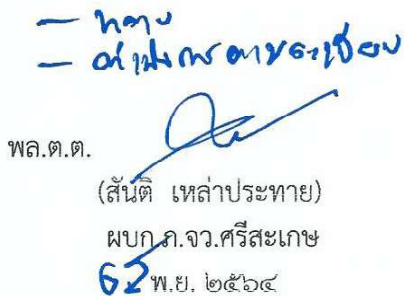 - ทราบ
- ดำเนินการตามระเบียบ
พล.ต.ต.
(สันติ เหล่าประทาย)
ผบก.ภ.จว.ศรีสะเกษ
พ.ย. ๒๕๖๔